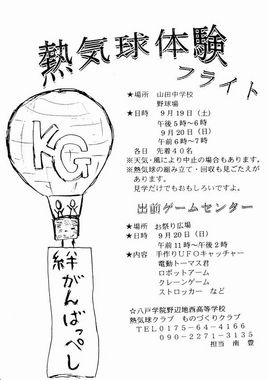 熱気球体験
フライト
★場所 山田中学校
野球場
★日時 9月19日（土）
午後5～6時
9月20日（日）
午前6～7時
各日 先着40名
※天気・風により中止の場合もあります。
※熱気球の組み立て・回収も見ごたえが
あります。
見学だけでもおもしろいですよ。
出前ゲームセンター
★場所 お祭り広場
★日時 9月20日（日）
午前11時～午後2時
★内容 手作りUFOキャッチャー
電動トーマス君
ロボットアーム
クレーンゲーム
ストロッカー など
☆八戸学院野辺地西高等学校
熱気球クラブ ものづくりクラブ
TEL0175-64-4166
090-2271-3135
担当 南 豊
KG
絆がんばっぺし